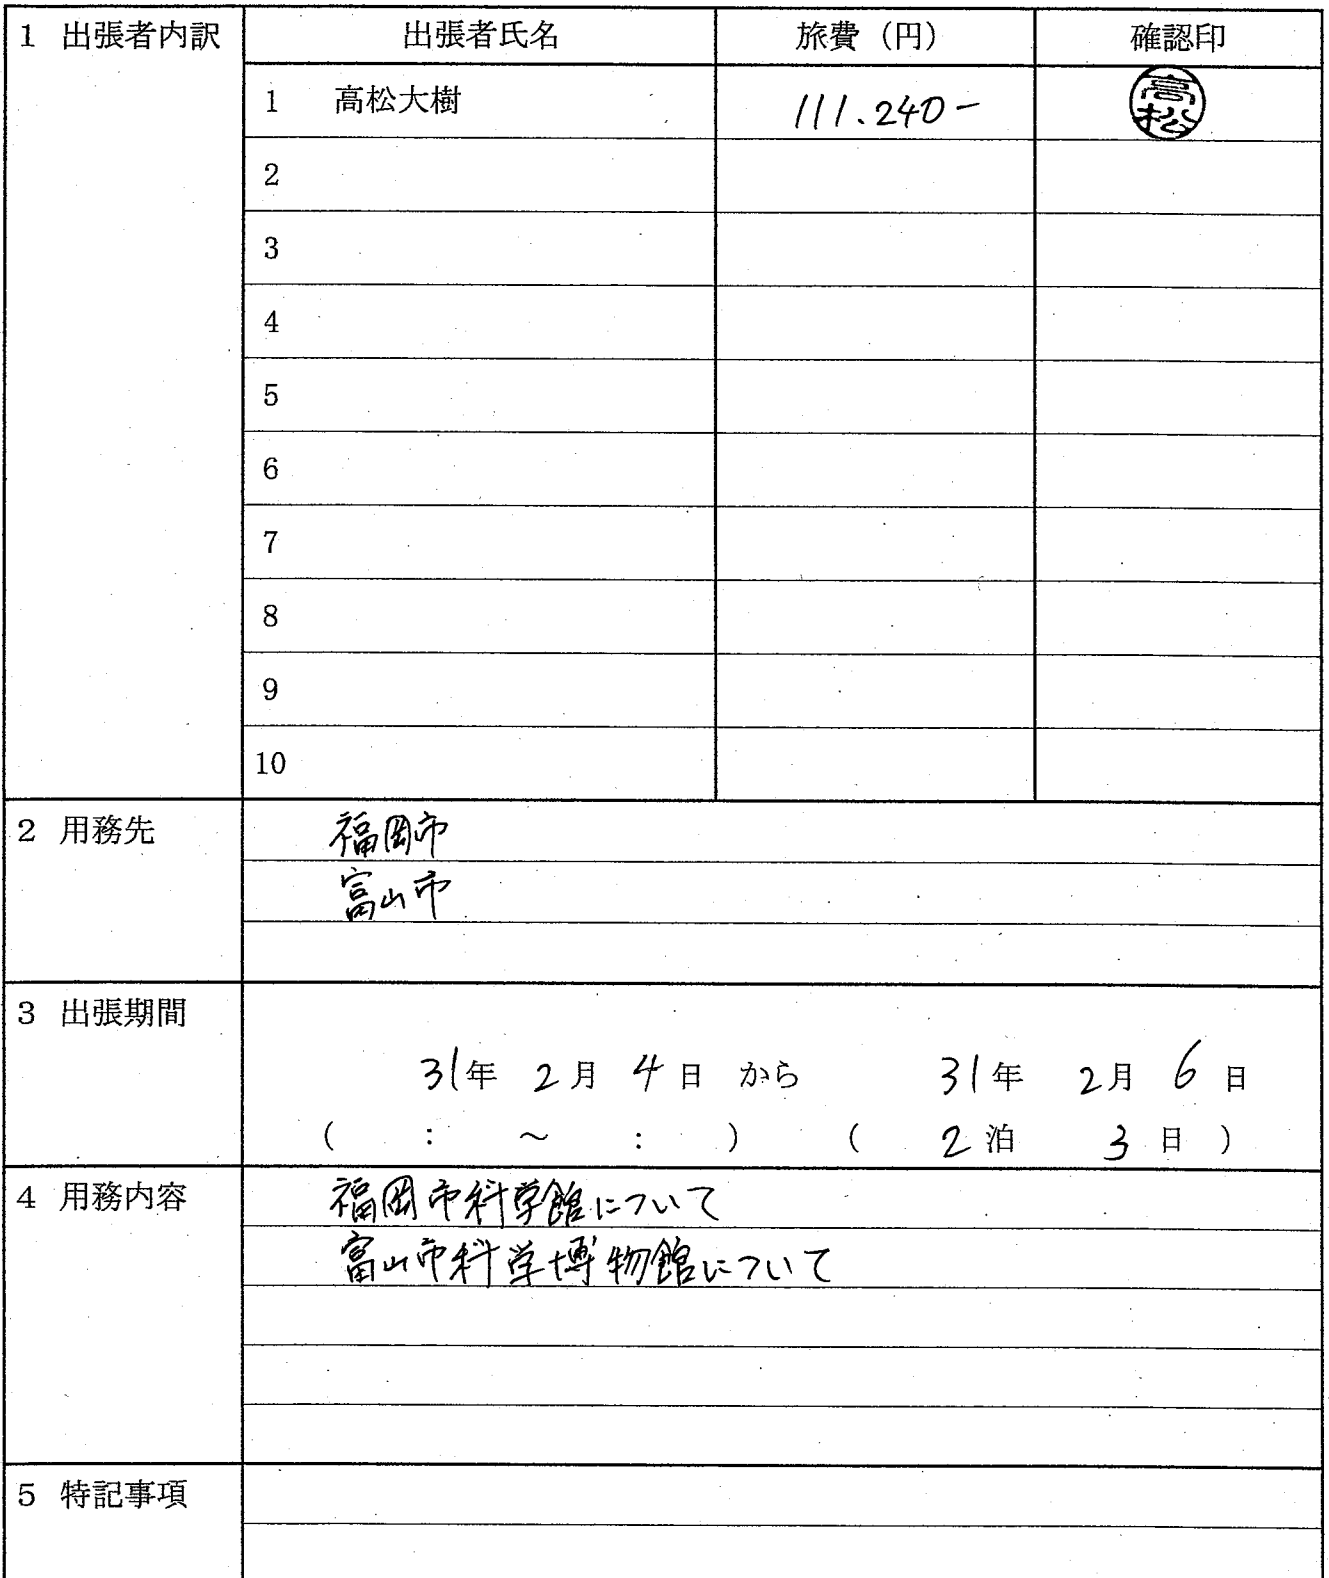 1 出張者内訳 出張者氏名 旅費 (円) 確認印
1 高松大樹 111.240- 高松
2
3
4
5
6
7
8
9
10
2 用務先 福岡市
富山市
3 出張期間
31年 2月 4日 から 31年 2月 6日
( : ~ : ) ( 2泊 3日 )
4 用務内容 福岡市科学館について
富山市科学博物館について
5 特記事項